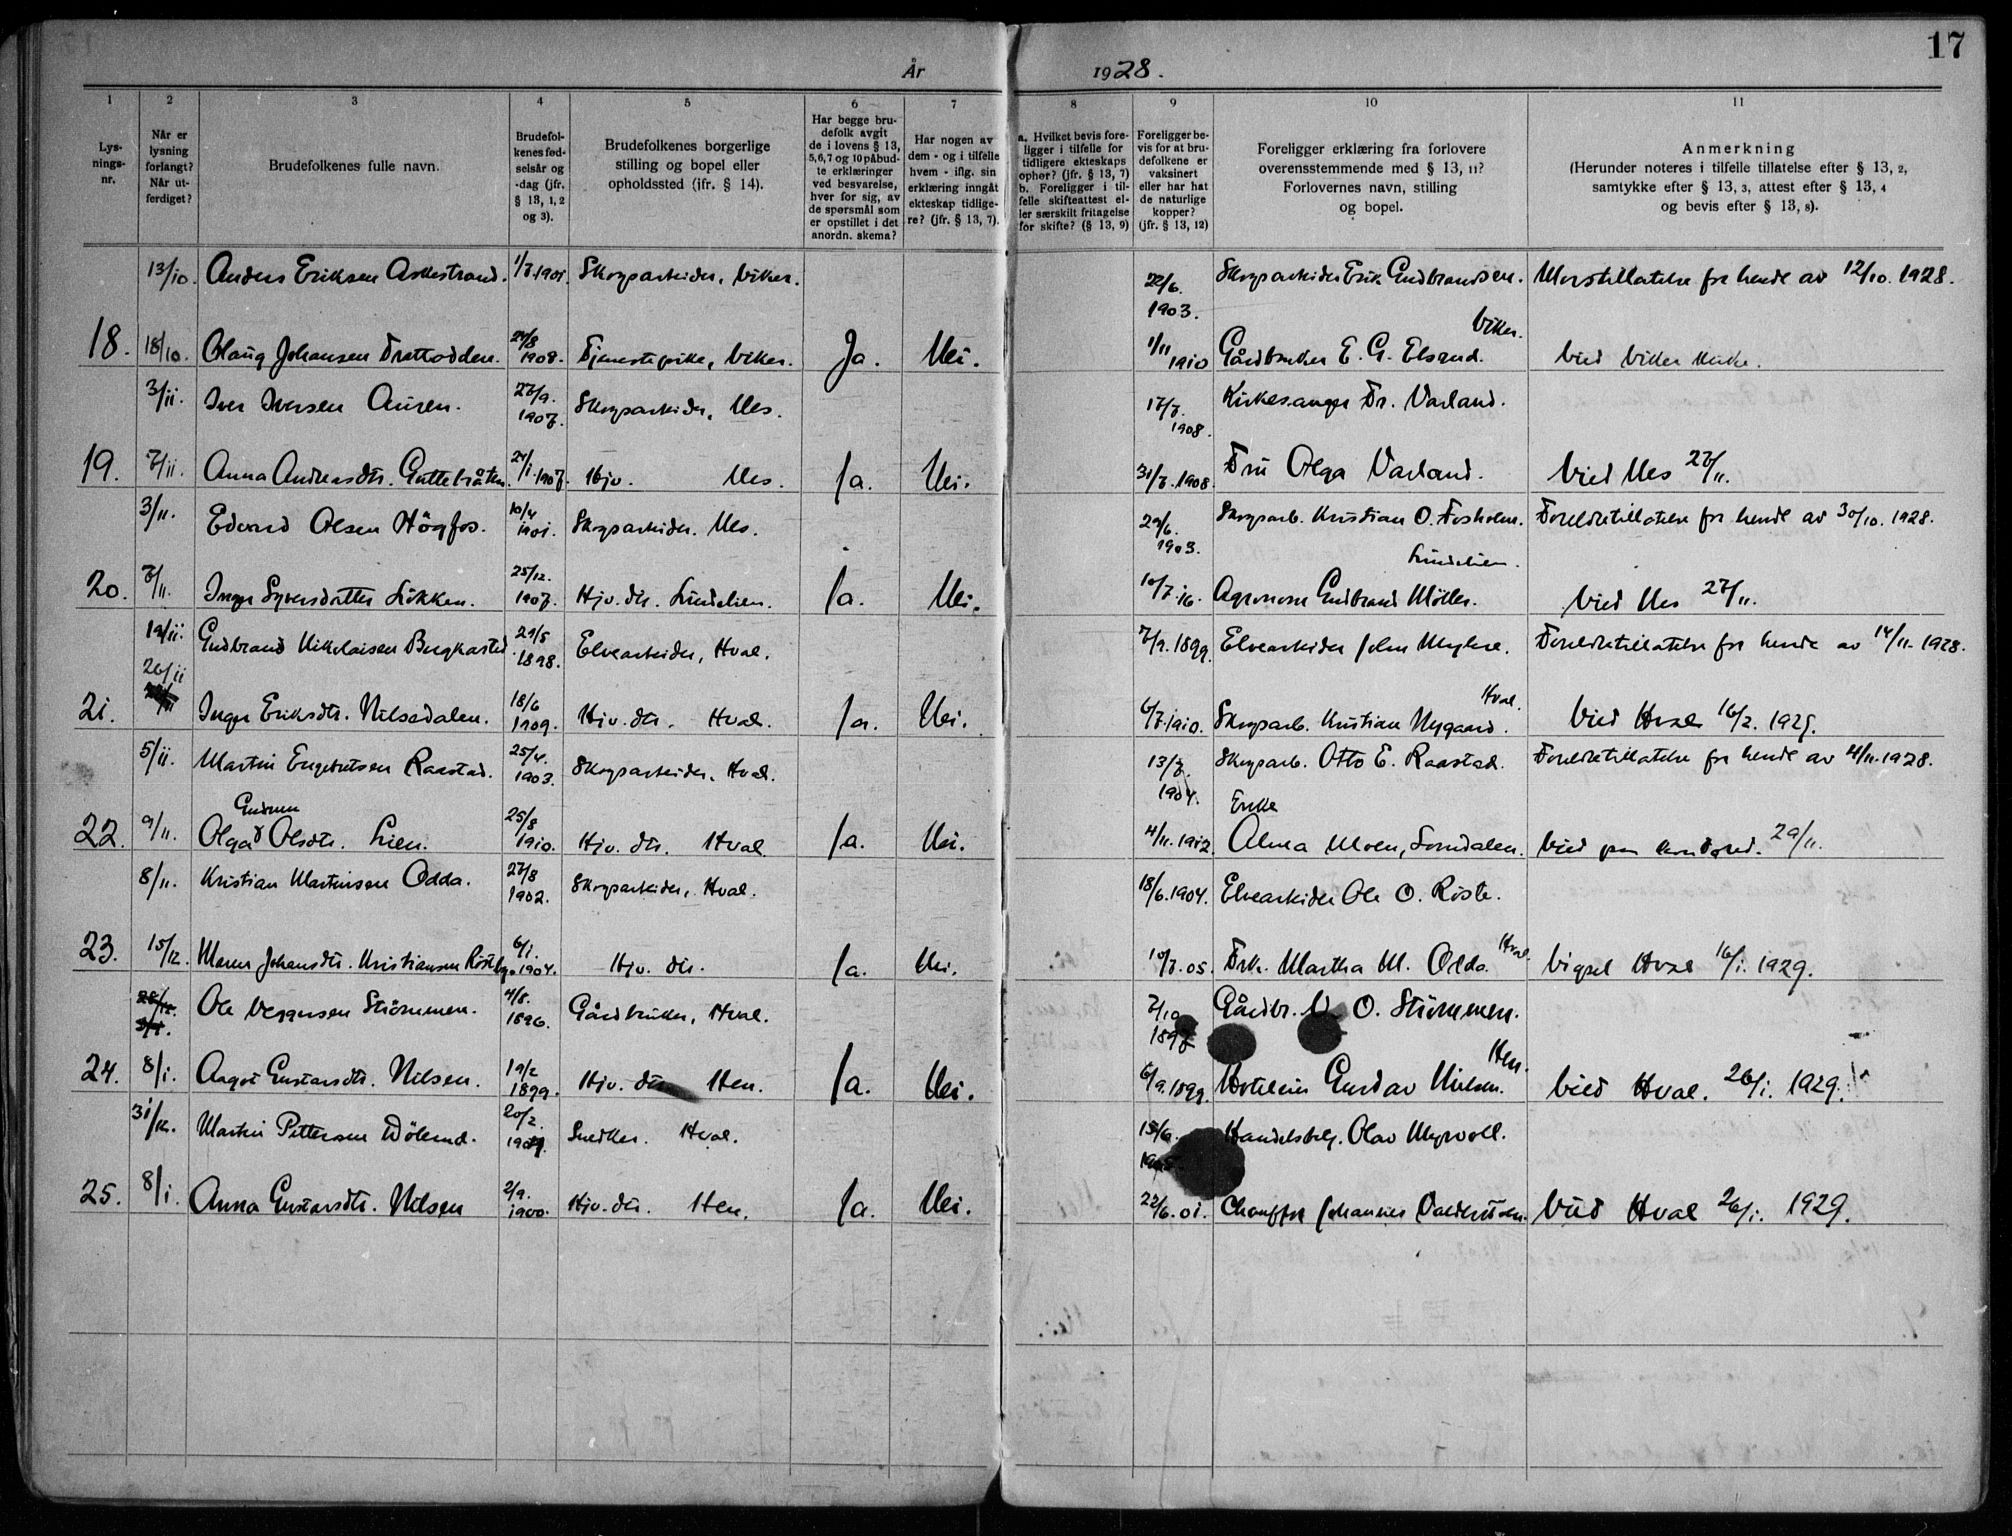 17
År 1928.
1 2 3 4 5 6 7 8 9 10 11
Lys-
nings-
nr.
Når er
lysning
forlangt?
Når ut-
ferdiget?
Brudefolkenes fulle navn.
Brudefol-
kenes fød-
selsår og
-dag (jfr.
§ 13, 1, 2
og 3).
Brudefolkenes borgerlige
stilling og bopel eller
opholdssted (jfr. § 14).
Har begge bru-
defolk avgit
de i lovens § 13,
5,6,7 og 10 påbud-
te erklæringer
ved besvarelse,
hver for sig, av
de spørsmål som
er opstillet i det
anordn. skema?
Har nogen av
dem - og i tilfelle
hvem - iflg. sin
erklæring inngåt
ekteskap tidlige-
re? (jfr. § 13, 7).
a. Hvilket bevis fore-
ligger i tilfelle for
tidligere ekteskaps
ophør? (jfr. § 13, 7)
b. Foreligger i til-
felle skifteattest el-
ler særskilt fritagelse
for skifte? (§ 13, 9)
Foreligger be-
vis for at bru-
defolkene er
vaksinert
eller har hat
de naturlige
kopper?
(jfr. § 13, 12)
Foreligger erklæring fra forlovere
overensstemmende med § 13, 11?
Forlovernes navn, stilling
og bopel.
Anmerkning
(Herunder noteres i tilfelle tillatelse efter § 13, 2,
samtykke efter § 13, 3, attest efter § 13, 4
og bevis efter § 13, 8).
13/10. Anders Eriksen Askestrand. 1/7.1901. Skogsarbeider, Viker. 22/6. 1903. Skogsarbeider Erik Gudbrandsen. Viker. Morstillatelse for hende av 12/10. 1928.
18. 18/10. Olaug Johansen Trattodden. 24/8 1908. Tjenestepike, Viker. Ja. Nei. 1/11 1910 Gårdbruker E. G. Elsrud. Vied Viker kirke.
3/11. Iver Iversen Auren. 27/9. 1907. Skogsarbeider, Nes. 17/7. 1908. Kirkesanger Fr. Varland.
19. 7/11. Anna Andreasdtr. Guttebråten. 24/1.1907. Hjv. Nes. Ja. Nei. 31/7.1908. Fru Olga Varland. Vied Nes 27/11.
3/11. Edvard Olsen Högfos. 10/4 1901. Skogsarbeider. Nes. 29/6. 1903. Skogsarb. Kristian O. Fosholm. Sindelien. Foreldretillatelse for hende av 30/10. 1928.
20. 7/11. Inger Syversdatter Løkken. 25/12. 1907. Hjv. dtr. Sindelien. Ja. Nei. 10/7.16. Agronom Gudbrand Möller. Vied Nes 27/11.
19/11. Gudbrand Nikolaisen Bergkasted 29/5 1898. Elvearbeider, Hval. 7/9.1899. Elvearbeider John Myhre. Hval. Foreldretillatelse for hende av 14/11. 1928.
21. 26/11 Inger Eriksdtr. Nilsedalen. 18/6 1909. Hjv. dtr. Hval. Ja. Nei. 6/7.1910. Skogsarb. Kristian Nygaard. Vied Hval 16/2. 1929.
5/11. Martin Engebretsen Raastad. 25/4. 1903. Skogsarbeider. Hval. 13/7. 1904. Skogsarb. Otto E. Raastad. Foreldretillatelse for hende av 4/11.1928.
22. 9/11. Olga Gudrun Olsdtr. Lien. 25/8 1910. Hjv. dtr. Hval. Ja. Nei. 4/11.1912. Enke Alma Moen, Somdalen. Vied 29/11.
8/11. Kristian Martinsen Odda. 27/8 1902. Skogsarbeider, Hval. 18/6.1904. Elvearbeider Ole O. Röste. Hval.
23. 15/12. Maren Johansdtr. Kristiansen 6/1. 1904. Hjv. dtr. Ja. Nei. 10/7.05. Frk. Martha M. Odda. Vigsel Hval 16/1. 1929.
28/12. 3/1. Ole Veggersen Strömmen. 4/8. 1896. Gårdbruker, Hval. 7/10 1897 Gårdbr. O. Strömmen. Hen.
24. 8/1. Aagot Gustavsdtr. Nilsen. 19/2 1899. Hjv. dtr. Hen. Ja. Nei. 6/9.1899. Gustav Nielsen. Vied Hval. 26/1. 1929.
31/12. Martin Pettersen Dölerud. 20/2. Snedker. Hval. 15/6. Handelsbetj. Olav Myrvoll.
25. 8/1. Anna Gustavsdtr. Nilsen 2/9. 1900. Hjv. dtr. Hen. Ja. Nei. 22/6.01. Chauffør Johannes Vied Hval 26/1. 1929.